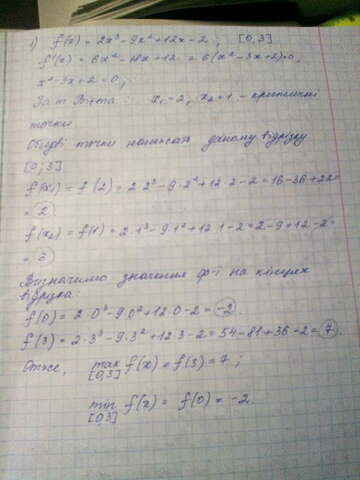 1) f(x) = 2x³ - 9x² + 12x - 2 ; [0,3]
f'(x) = 6x² - 18x + 12 = 6(x² - 3x + 2) = 0,
x² - 3x + 2 = 0,
За т. Вієта: x₁ = 2, x₂ = 1 - критичні
точки
Обидві точки належать даному відрізку
[0; 3]
f(x₁) = f(2) = 2·2³ - 9·2² + 12·2 - 2 = 16 - 36 + 22 =
= 2
f(x₂) = f(1) = 2·1³ - 9·1² + 12·1 - 2 = 2 - 9 + 12 - 2 =
= 3
Визначимо значення ф-ї на кінцях
відрізка:
f(0) = 2·0³ - 9·0² + 12·0 - 2 = -2
f(3) = 2·3³ - 9·3² + 12·3 - 2 = 54 - 81 + 36 - 2 = 7
Отже, max f(x) = f(3) = 7 ;
[0,3]
min f(x) = f(0) = -2.
[0,3]